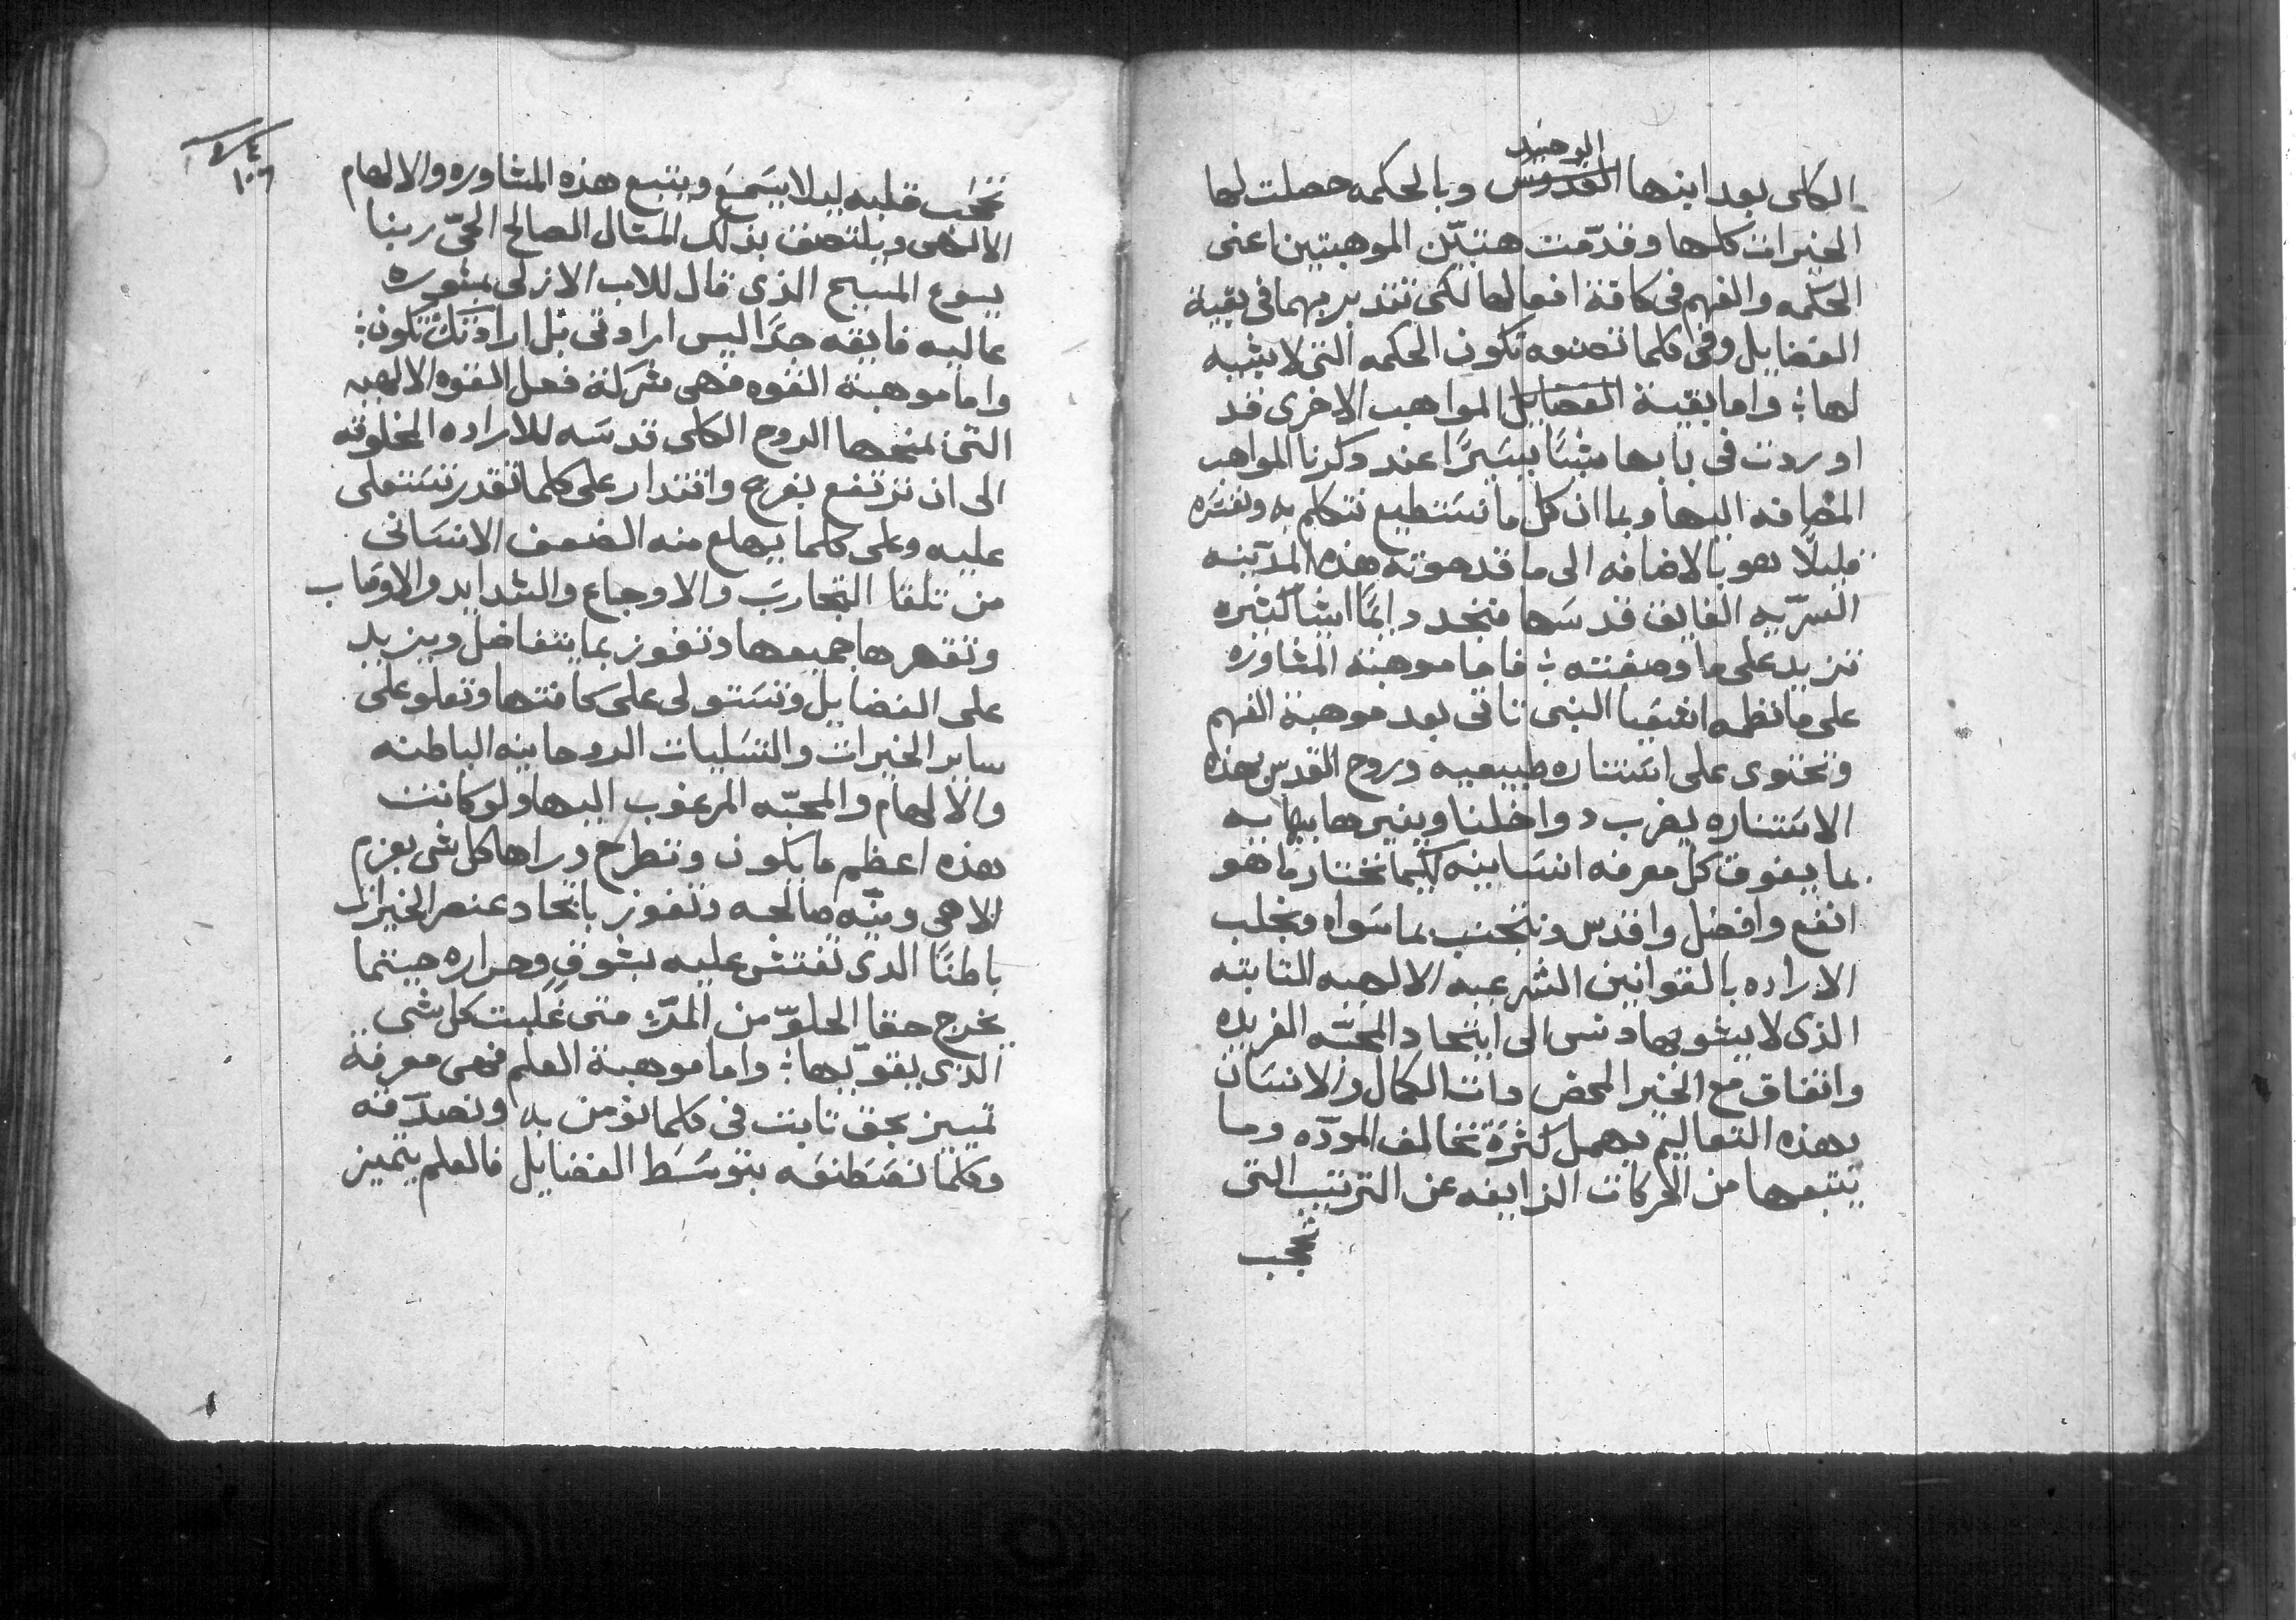 الوحيد
الكلى بعد ابنها القدوس وبالحكمه حصلت لها
الخيرات كلها وقدّمت هتيّن الموهبتين اعنى
الحكمه والفهم فى كافة افعالها لكى نتدبر بهما فى بقية
الفضايل وفى كلما تصنعه تكون الحكمه التى لا يشبه
لها ؛ واما بقية الفضايل المواهب الاخرى قد
اوردت فى بابها شيًا يسيرًا عند ذكرنا المواهب
المضافه اليها وبما ان كل ما نستطيع نتكلم به ونفسره
قليلًا هو بالاضافه الى ما قد حوته هذه المدينه
السرّيه الفايق قدسها فنجد دايمًا اشيا كثيره
تزيد على ما وصفته ؛ فاما موهبة المشاوره
على ما نظمه اشعيا النبى تاتى بعد موهبة الفهم
وتحتوى على استناره طبيعيه وروح القدس بهذه
الاستناره يضرب دواخلنا وينيرها
بما يفوق كل معرفه انسانيه لكيما تختار ما هو
انفع وافضل واقدس وتتجنب ما سواه ويجلب
الاراده بالقوانين الشرعيه الالهيه الثابته
الذى لا يشوبها دنس الى اتحاد المحبّه الفريده
واتفاق مع الخير المحض ذات الكمال والانسان
بهذه التعاليم يهمل كثرة تخالف المودّه وما
يتبعها من الحركات الزايغه عن الترتيب التى
تحجب
١٠٦
تحجب قلبه ليلا يسمع ويتبع هذه المشاوره والالهام
الالهى ويلتصق بذلك المثال الصالح الحىّ ربنا
يسوع المسيح الذى قال للاب الازلى بمشوره
عاليه فايقه جدًا ليس ارادتى بل ارادتك تكون ؛
واما موهبة القوه فهى شركة فعل القوه الالهيه
التى يمنحها الروح الكلى قدسه للاراده المخلوقه
الى ان ترتفع بفرح واقتدار على كلما تقدر تستعلى
عليه وعلى كلما يهلع منه الضعف الانسانى
من تلقا التجارب والاوجاع والشدايد والاوصاب
وتقهرها جميعها وتفوز بما يتفاضل ويزيد
على الفضايل وتستولى على كافتها وتعلو على
ساير الخيرات والتسليات الروحانيه الباطنه
والالهام والمحبّه المرغوب اليها ولو كانت
هذه اعظم ما يكون وتطرح وراها كل شى بعزم
الاهى ونيّه صالحه وتفوز باتحاد عنصر الخيرات
باطنًا الذى تفتش عليه بشوقٍ وحراره حينما
يخرج حقا الحلوّ من المرّ متى غلبت كل شى
الذى يقوّيها ؛ واما موهبة العلم فهى معرفة
تمييز بحق ثابت فى كلما نؤمن به ونصدّقه
وكلما نصطنعه بتوسط الفضايل فالعلم يتميز